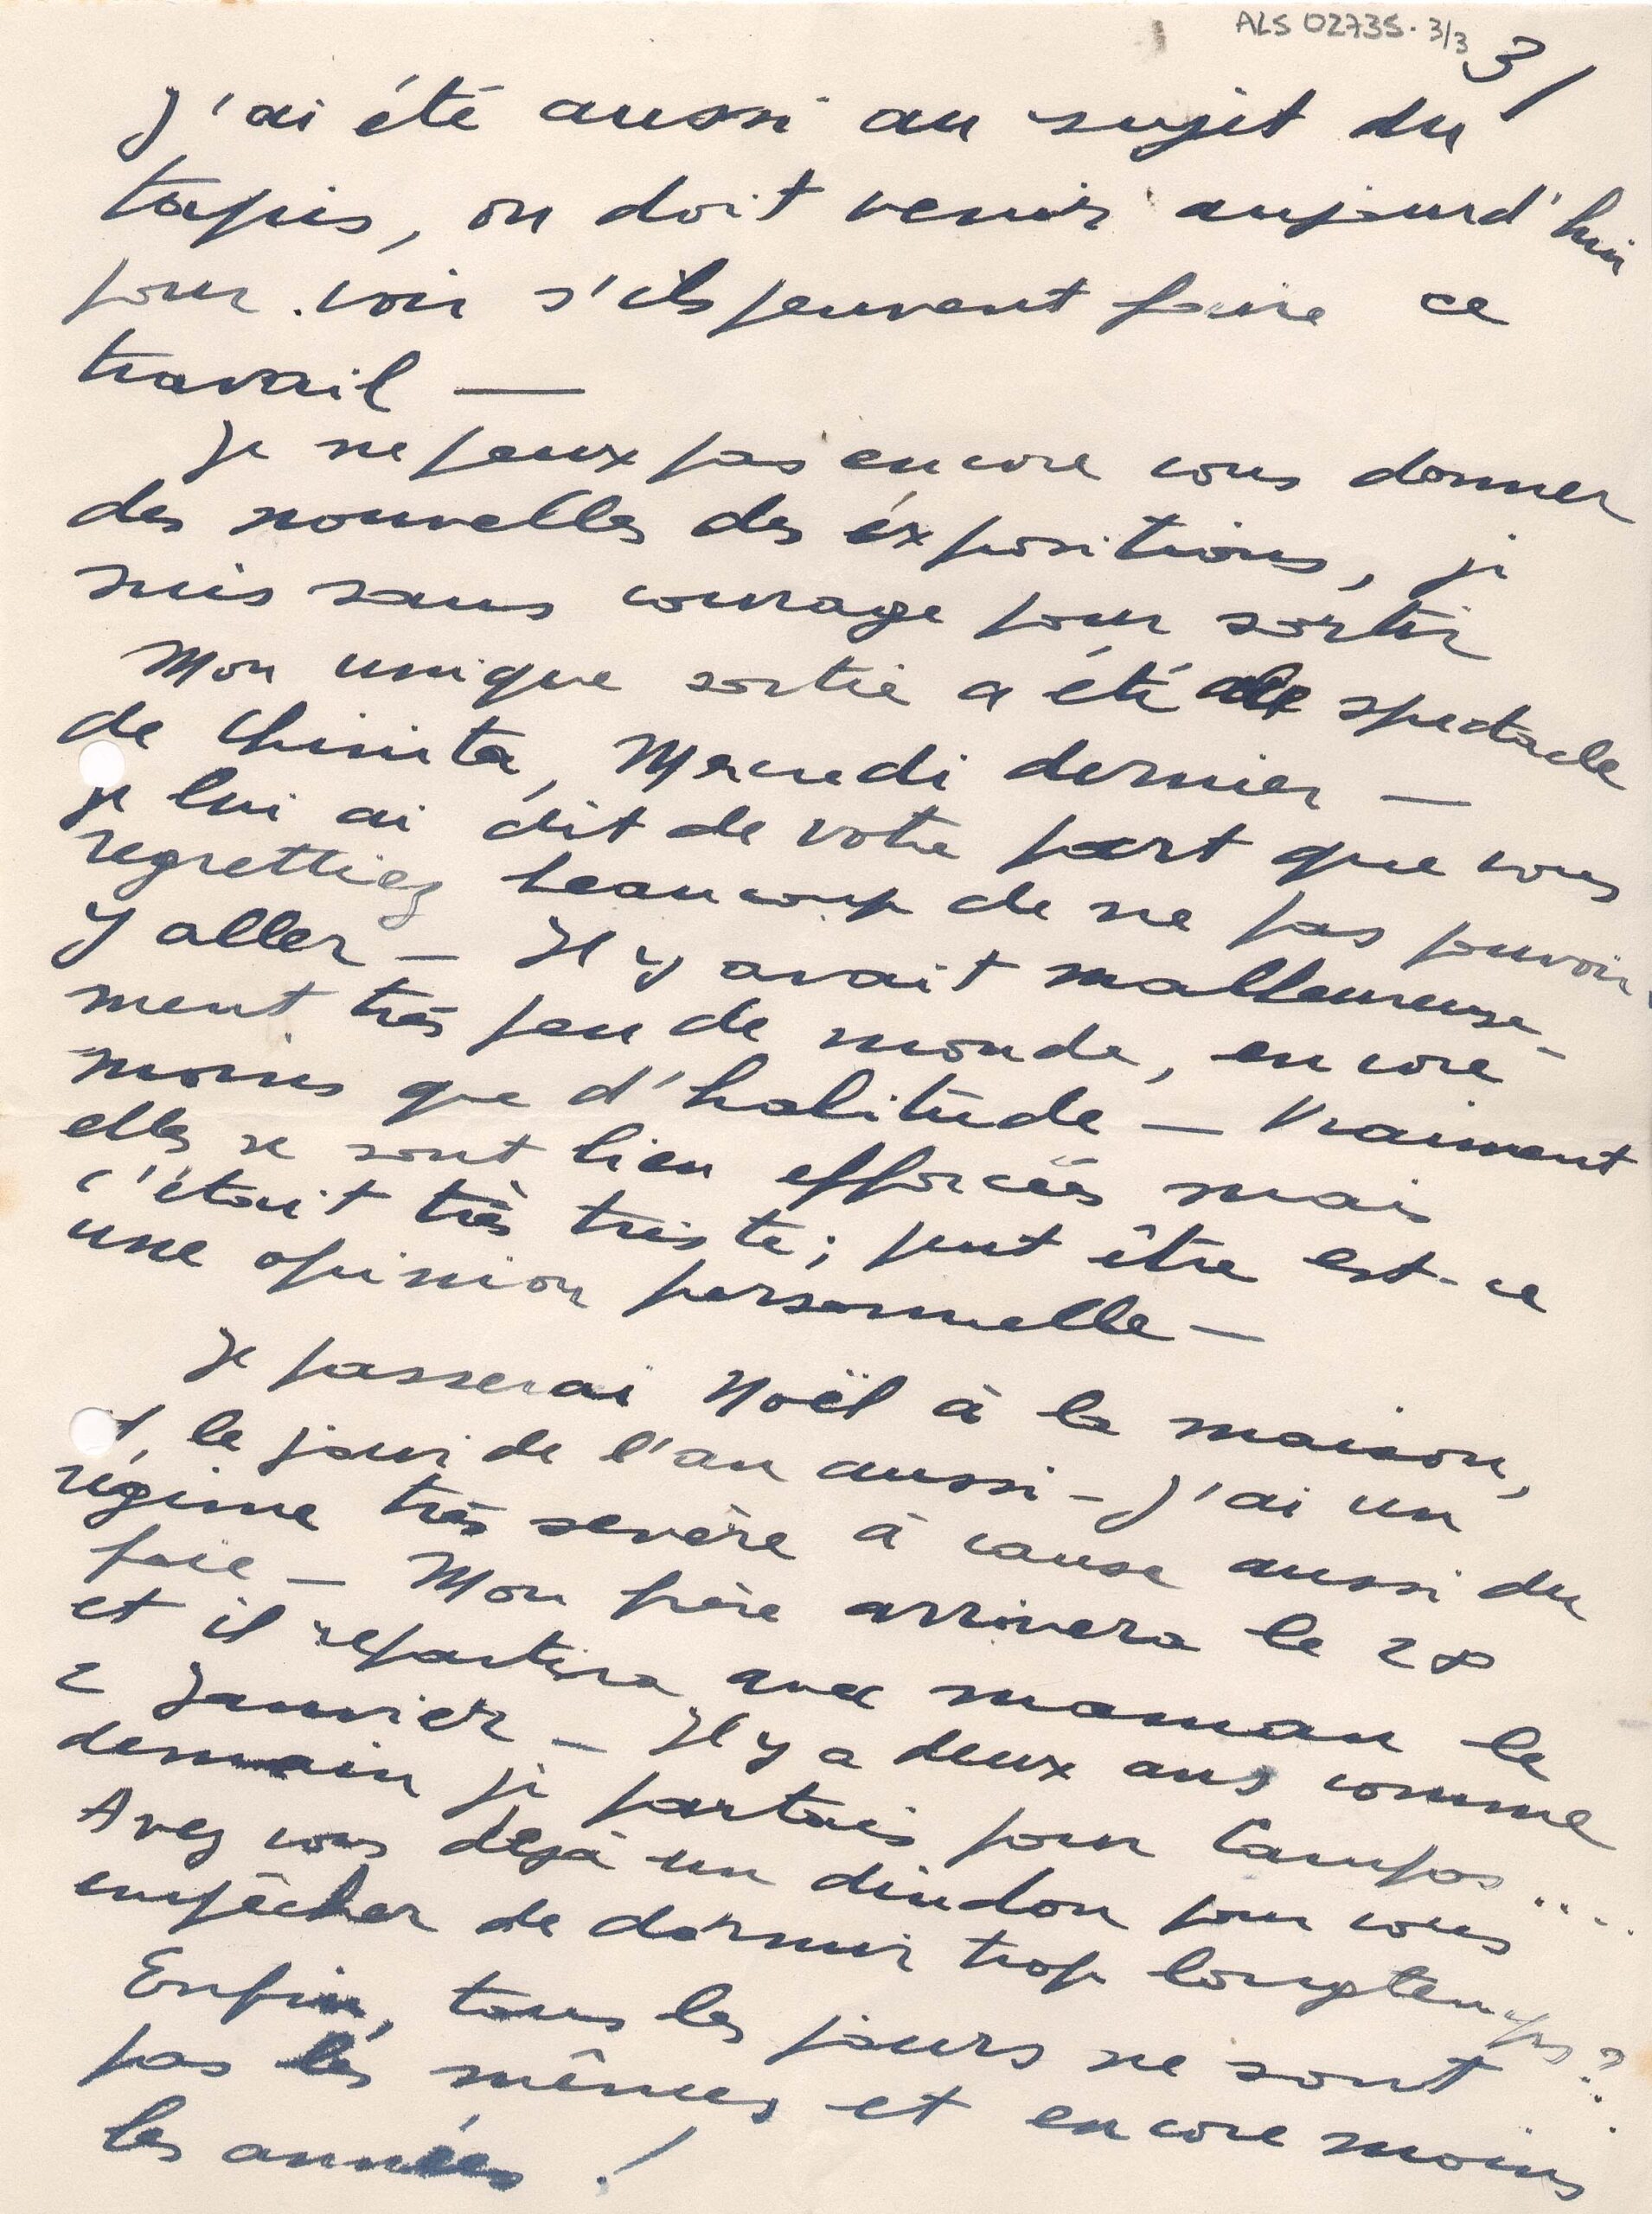 ALS 02735. 3/3
3/
J'ai été aussi au sujet du
tapis, on doit venir aujourd'hui
pour voir s'ils peuvent faire ce
travail —
Je ne peux pas encore vous donner
des nouvelles des éxpositions, je
suis sans courage pour sortir
Mon unique sortie a été spectacle
de Chinita, Mercredi dernier —
je lui ai dit de votre part que vous
regrettiez beaucoup de ne pas pouvoir
y aller — Il y avait malheureuse-
ment très peu de monde, encore
moins que d'habitude — Vraiment
elles se sont bien efforcées mais
c'était très triste; peut être est-ce
une opinion personnelle —
Je passerai Noël à la maison,
et, le jour de l'an aussi — J'ai un
régime très sevère à cause aussi du
foie — Mon frère arrivera le 28
et il repartira avec maman le
2 Janvier — Il y a deux ans comme
demain je partais pour Campos ....
Avez vous dejà un dindon pour vous
empêcher de dormir trop longtemps ?
Enfin, tous les jours ne sont
pas les mêmes et encore moins
les années !